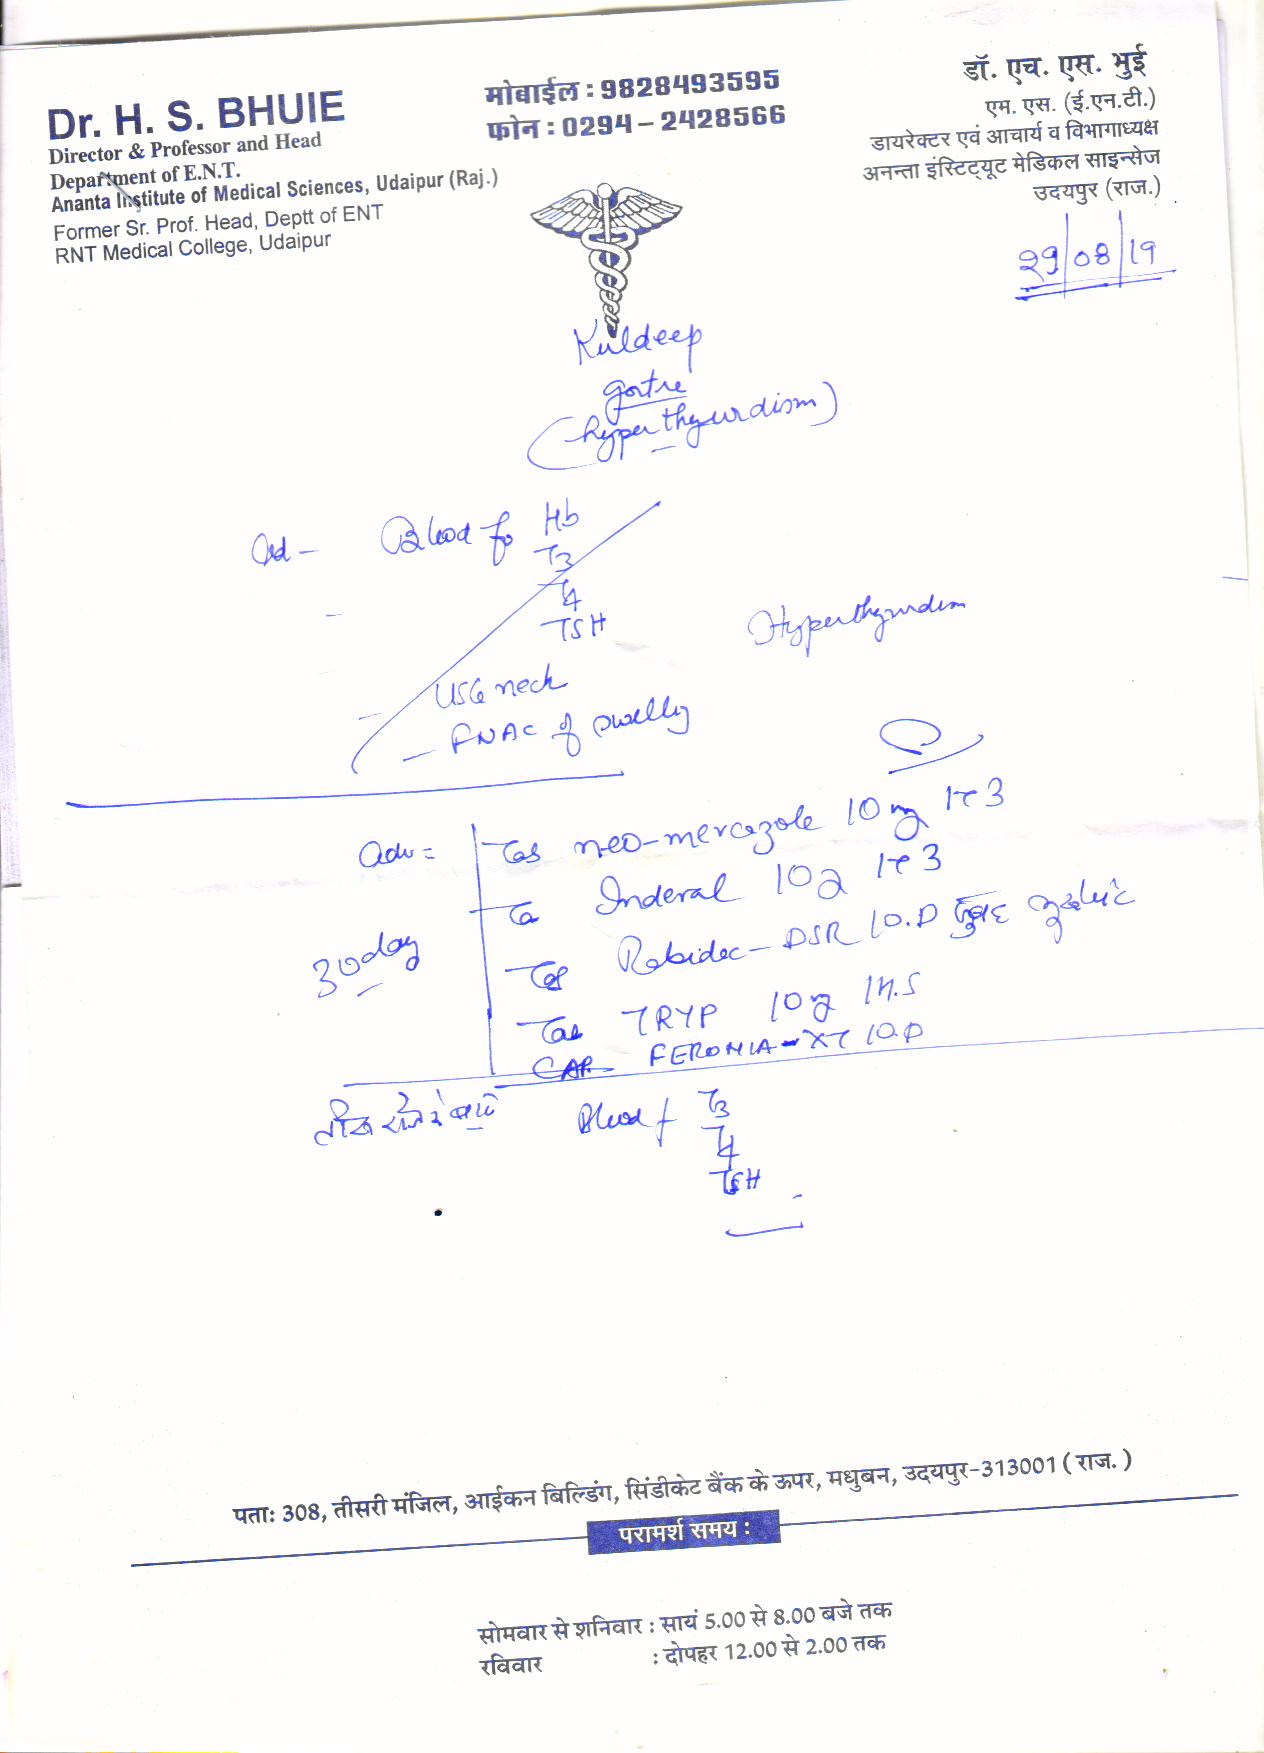 Dr. H. S. BHUIE
Director & Professor and Head
Department of E.N.T.
Ananta Institute of Medical Sciences, Udaipur (Raj.)
Former Sr. Prof. Head, Deptt of ENT
RNT Medical College, Udaipur
मोबाईल : 9828493595
फोन : 0294 – 2428566
डॉ. एच. एस. भुई
एम. एस. (ई.एन.टी.)
डायरेक्टर एवं आचार्य व विभागाध्यक्ष
अनन्ता इंस्टिट्यूट मेडिकल साइन्सेज
उदयपुर (राज.)
29/08/19
Kuldeep
(hyperthyurdism)
Blood for Hb
T3
T4
TSH
Hyperthyurdism
USG neck
- FNAC of swelly
Adv = Tab neo-mercazole 10 mg 1 T 3
Inderal 10 1 T 3
30 day
Tab Rabidec - DSR 1 O.D सुबह
Tab TRYP 10 1 H.S
CAP FERONIA - XT 1 O.D
Blood f T3
T4
TSH
पता: 308, तीसरी मंजिल, आईकन बिल्डिंग, सिंडीकेट बैंक के ऊपर, मधुबन, उदयपुर-313001 ( राज. )
परामर्श समय :
सोमवार से शनिवार : सायं 5.00 से 8.00 बजे तक
रविवार : दोपहर 12.00 से 2.00 तक